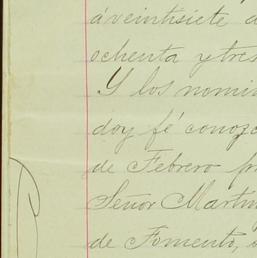 á veintisiete d
ochenta y tres
Y los nomin
doy fé conozc
de Febrero p
Señor Martin
de Fomento,